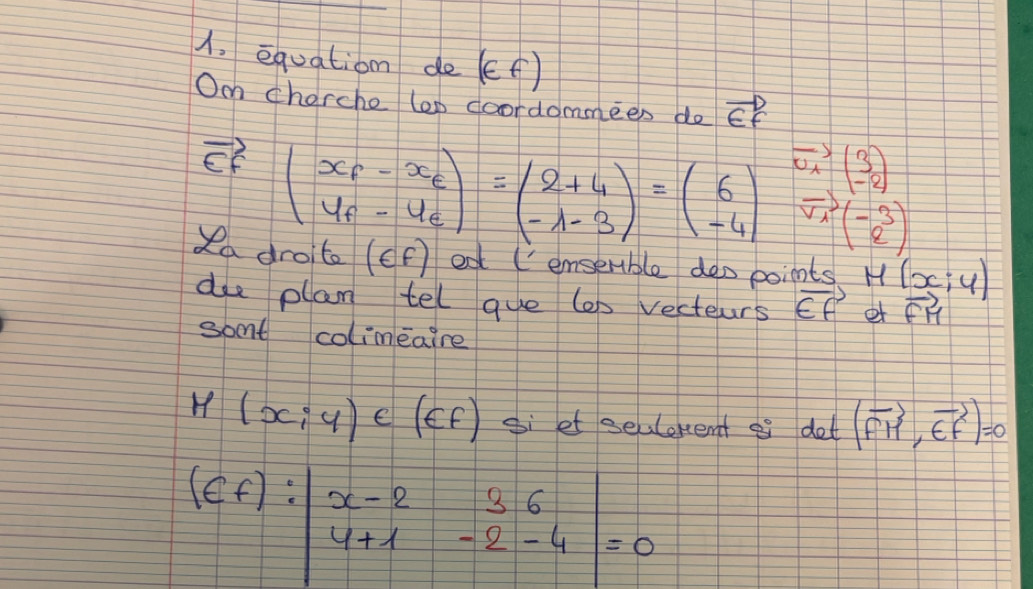 1. équation de (EF)
On cherche les coordonnées de EF→
EF→ (xF - xE ; yF - yE) = (2+4 ; -1-3) = (6 ; -4) u1→ (3 ; -2)
v1→ (-3 ; 2)
La droite (EF) est l'ensemble des points M(x;y)
du plan tel que les vecteurs EF→ et FM→
sont colinéaire
M (x;y) ∈ (EF) si et seulement si det (FM→, EF→)=0
(EF): | x-2 3 6 |
| y+1 -2 -4 | = 0